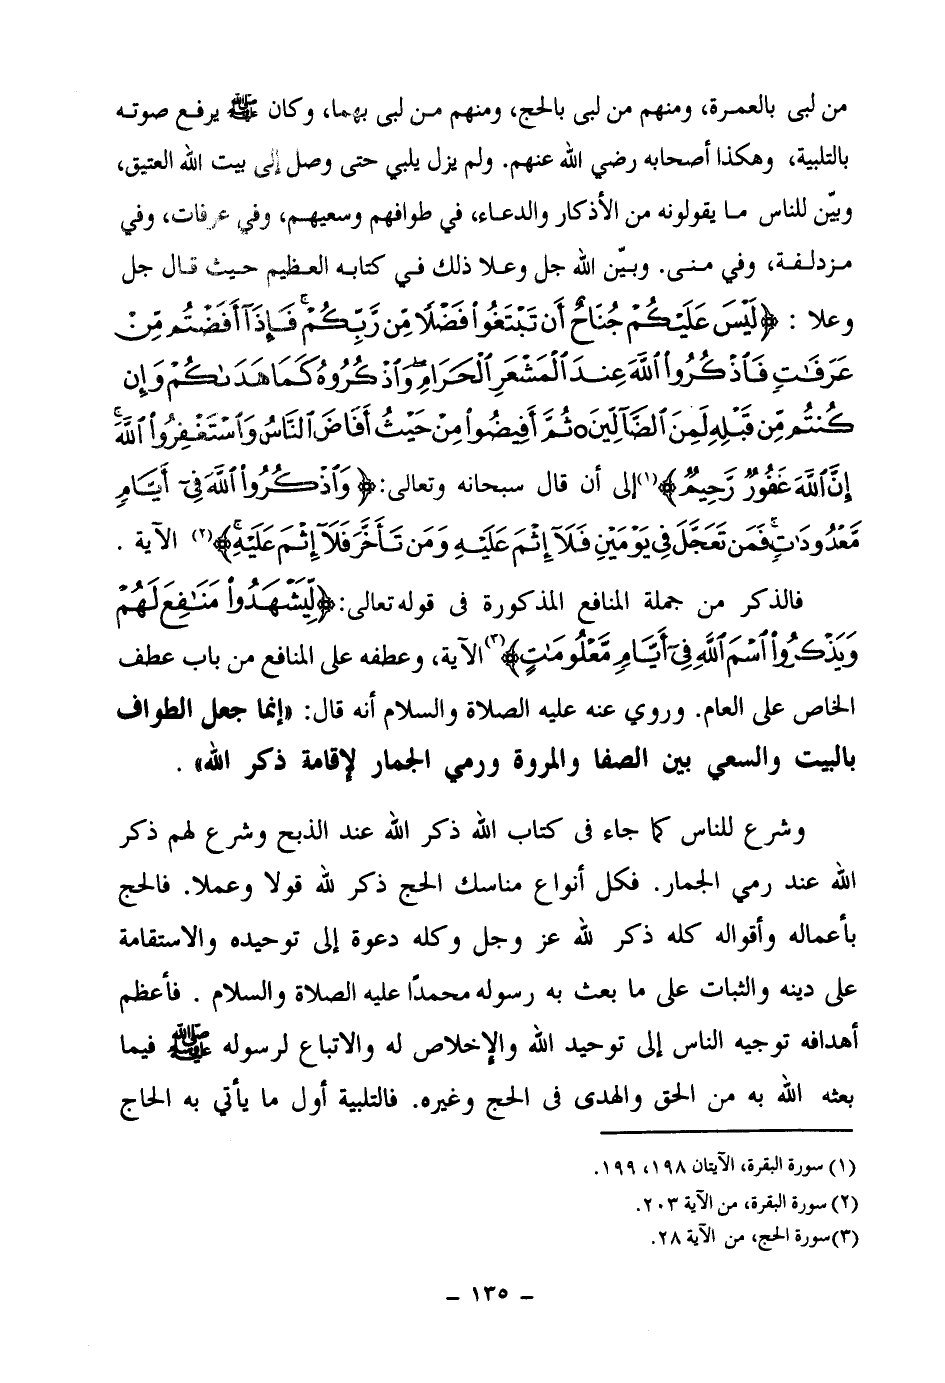 من لبى بالعمرة، ومنهم من لبى بالحج، ومنهم من لبى بهما، وكان ﷺ يرفع صوته
بالتلبية، وهكذا أصحابه رضي الله عنهم. ولم يزل يلبي حتى وصل إلى بيت الله العتيق،
وبيّن للناس ما يقولونه من الأذكار والدعاء، في طوافهم وسعيهم، وفي عرفات، وفي
مزدلفة، وفي منى. وبيّن الله جل وعلا ذلك في كتابه العظيم حيث قال جل
وعلا : ﴿لَيْسَ عَلَيْكُمْ جُنَاحٌ أَن تَبْتَغُوا۟ فَضْلًا مِّن رَّبِّكُمْ ۚ فَإِذَآ أَفَضْتُم مِّنْ
عَرَفَٰتٍ فَٱذْكُرُوا۟ ٱللَّهَ عِندَ ٱلْمَشْعَرِ ٱلْحَرَامِ ۖ وَٱذْكُرُوهُ كَمَا هَدَىٰكُمْ وَإِن
كُنتُم مِّن قَبْلِهِۦ لَمِنَ ٱلضَّآلِّينَ ○ ثُمَّ أَفِيضُوا۟ مِنْ حَيْثُ أَفَاضَ ٱلنَّاسُ وَٱسْتَغْفِرُوا۟ ٱللَّهَ ۚ
إِنَّ ٱللَّهَ غَفُورٌ رَّحِيمٌ﴾(١) إلى أن قال سبحانه وتعالى: ﴿وَٱذْكُرُوا۟ ٱللَّهَ فِىٓ أَيَّامٍ
مَّعْدُودَٰتٍ ۚ فَمَن تَعَجَّلَ فِى يَوْمَيْنِ فَلَآ إِثْمَ عَلَيْهِ وَمَن تَأَخَّرَ فَلَآ إِثْمَ عَلَيْهِ ۚ﴾(٢) الآية .
فالذكر من جملة المنافع المذكورة فى قوله تعالى: ﴿لِّيَشْهَدُوا۟ مَنَٰفِعَ لَهُمْ
وَيَذْكُرُوا۟ ٱسْمَ ٱللَّهِ فِىٓ أَيَّامٍ مَّعْلُومَٰتٍ﴾(٣) الآية، وعطفه على المنافع من باب عطف
الخاص على العام. وروي عنه عليه الصلاة والسلام أنه قال: «إنما جعل الطواف
بالبيت والسعي بين الصفا والمروة ورمي الجمار لإقامة ذكر الله» .
وشرع للناس كما جاء فى كتاب الله ذكر الله عند الذبح وشرع لهم ذكر
الله عند رمي الجمار. فكل أنواع مناسك الحج ذكر لله قولا وعملا. فالحج
بأعماله وأقواله كله ذكر لله عز وجل وكله دعوة إلى توحيده والاستقامة
على دينه والثبات على ما بعث به رسوله محمدًا عليه الصلاة والسلام . فأعظم
أهدافه توجيه الناس إلى توحيد الله والإخلاص له والاتباع لرسوله ﷺ فيما
بعثه الله به من الحق والهدى فى الحج وغيره. فالتلبية أول ما يأتي به الحاج
(١) سورة البقرة، الآيتان ١٩٨، ١٩٩.
(٢) سورة البقرة، من الآية ٢٠٣.
(٣) سورة الحج، من الآية ٢٨.
– ١٣٥ –